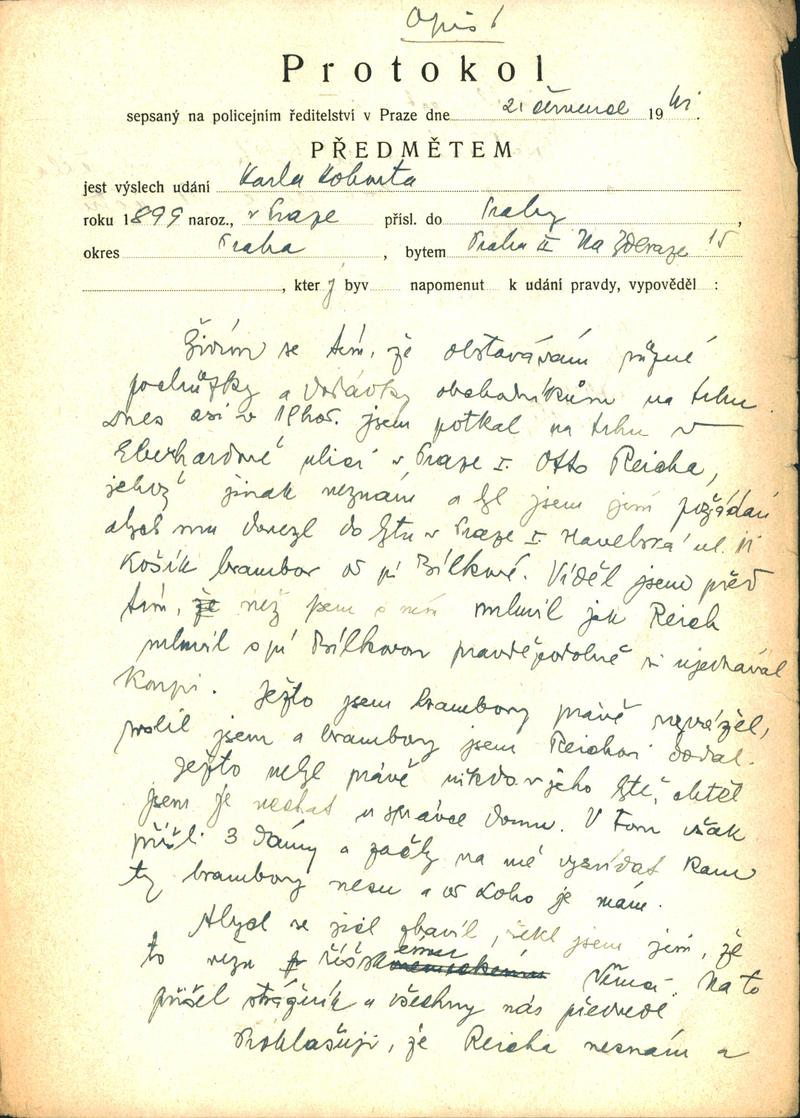 Opis
Protokol
sepsaný na policejním ředitelství v Praze dne 21 července 1941.
PŘEDMĚTEM
jest výslech udání Karla
roku 1899 naroz., v Praze přísl. do Prahy,
okres Praha, bytem Praha II Na Zderaze 15
, který byv napomenut k udání pravdy, vypověděl :
Živím se tím, že obstarávám různé
pochůzky a dodávky obchodníkům na trhu.
Dnes asi v 19 hod. jsem potkal na trhu v
Eberhardově ulici v Praze I. Otto Reicha,
jehož jinak neznám a byl jsem jím požádán
abych mu dovezl do bytu v Praze I. Havelská ul. 11
košík brambor od pí Bílkové. Viděl jsem před
tím, že než jsem s ním mluvil jak Reich
mluvil s pí Bílkovou pravděpodobně si ujednával
koupi. Ježto jsem brambory právě
jsem a brambory jsem Reichovi dodal.
Ježto nebyl právě nikdo v jeho bytě, chtěl
jsem je nechat u správce domu. V tom však
přišli 3 dámy a začly na mě vyzvídat kam
ty brambory nesu a od koho je mám.
Abych se jich zbavil, řekl jsem jim, že
to vezu říšskému Němci. Na to
přišel strážník a všechny nás předvedl.
Prohlašuji, že Reicha neznám a